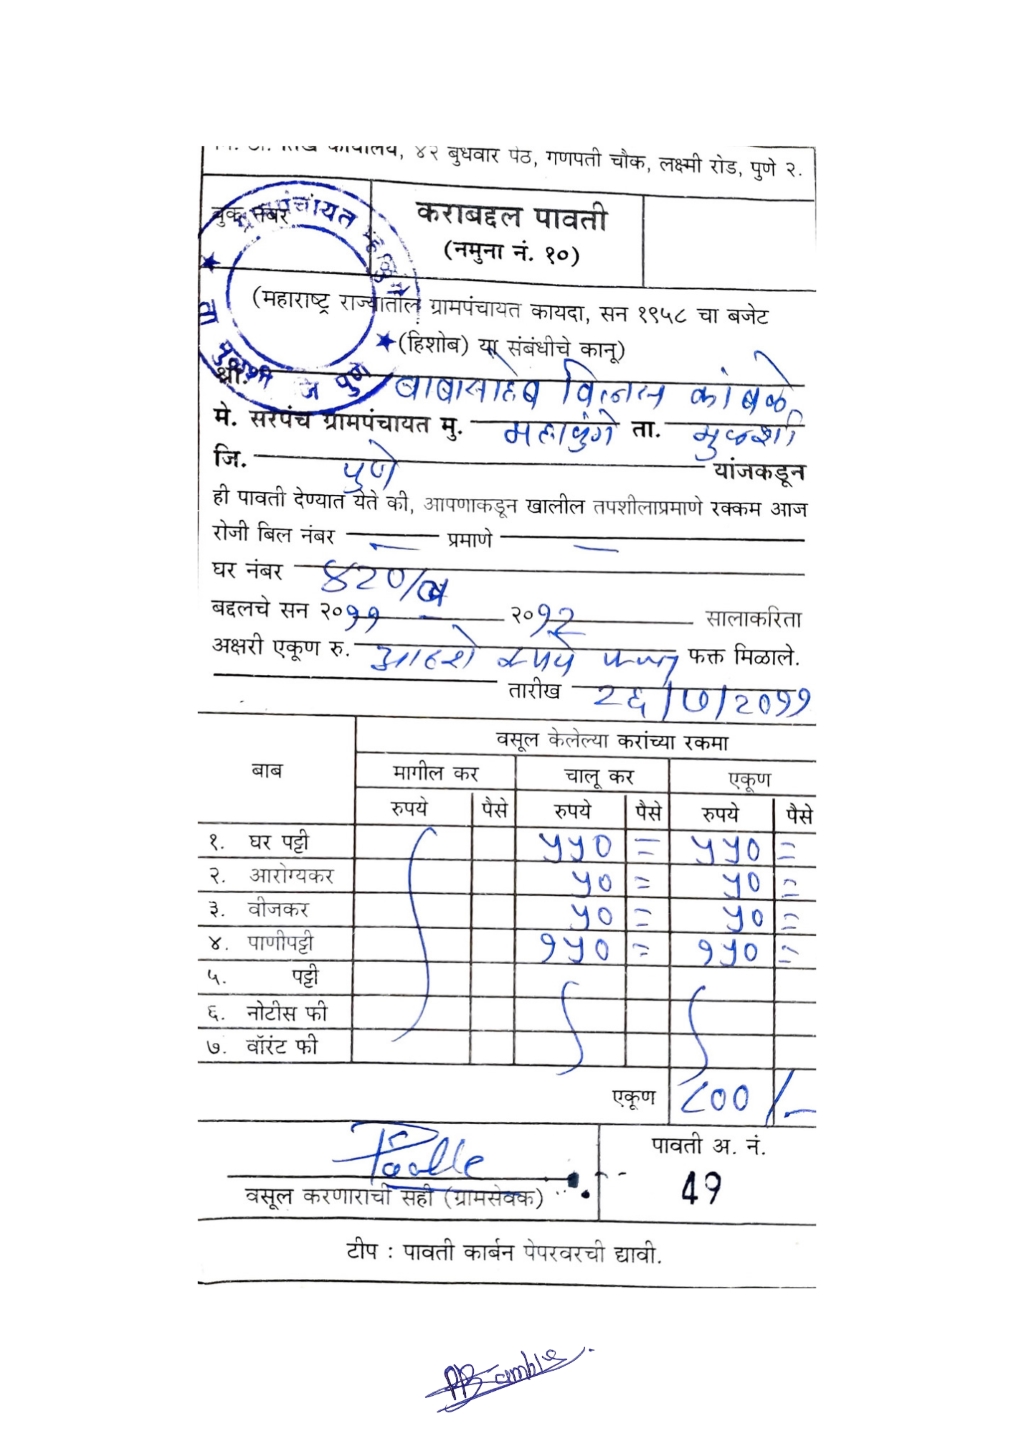 कार्यालय, ४२ बुधवार पेठ, गणपती चौक, लक्ष्मी रोड, पुणे २.
बुक नंबर
कराबद्दल पावती
(नमुना नं. १०)
(महाराष्ट्र राज्यातील ग्रामपंचायत कायदा, सन १९५८ चा बजेट
(हिशोब) या संबंधीचे कानू)
श्री. बाबासाहेब विलास कांबळे
मे. सरपंच ग्रामपंचायत मु. म्हाळुंगे ता. मुळशी
जि. पुणे यांजकडून
ही पावती देण्यात येते की, आपणाकडून खालील तपशीलाप्रमाणे रक्कम आज
रोजी बिल नंबर — प्रमाणे —
घर नंबर ४२०/ब
बद्दलचे सन २०११ - २०१२ सालाकरिता
अक्षरी एकूण रु. आठशे रुपये फक्त फक्त मिळाले.
तारीख २६/७/२०११
वसूल केलेल्या करांच्या रकमा
बाब मागील कर चालू कर एकूण
रुपये पैसे रुपये पैसे रुपये पैसे
१. घर पट्टी ५५० = ५५० =
२. आरोग्यकर ५० = ५० =
३. वीजकर ५० = ५० =
४. पाणीपट्टी १५० = १५० =
५. पट्टी
६. नोटीस फी
७. वॉरंट फी
एकूण ८००/-
पावती अ. नं.
49
वसूल करणाराची सही (ग्रामसेवक)
टीप : पावती कार्बन पेपरवरची द्यावी.